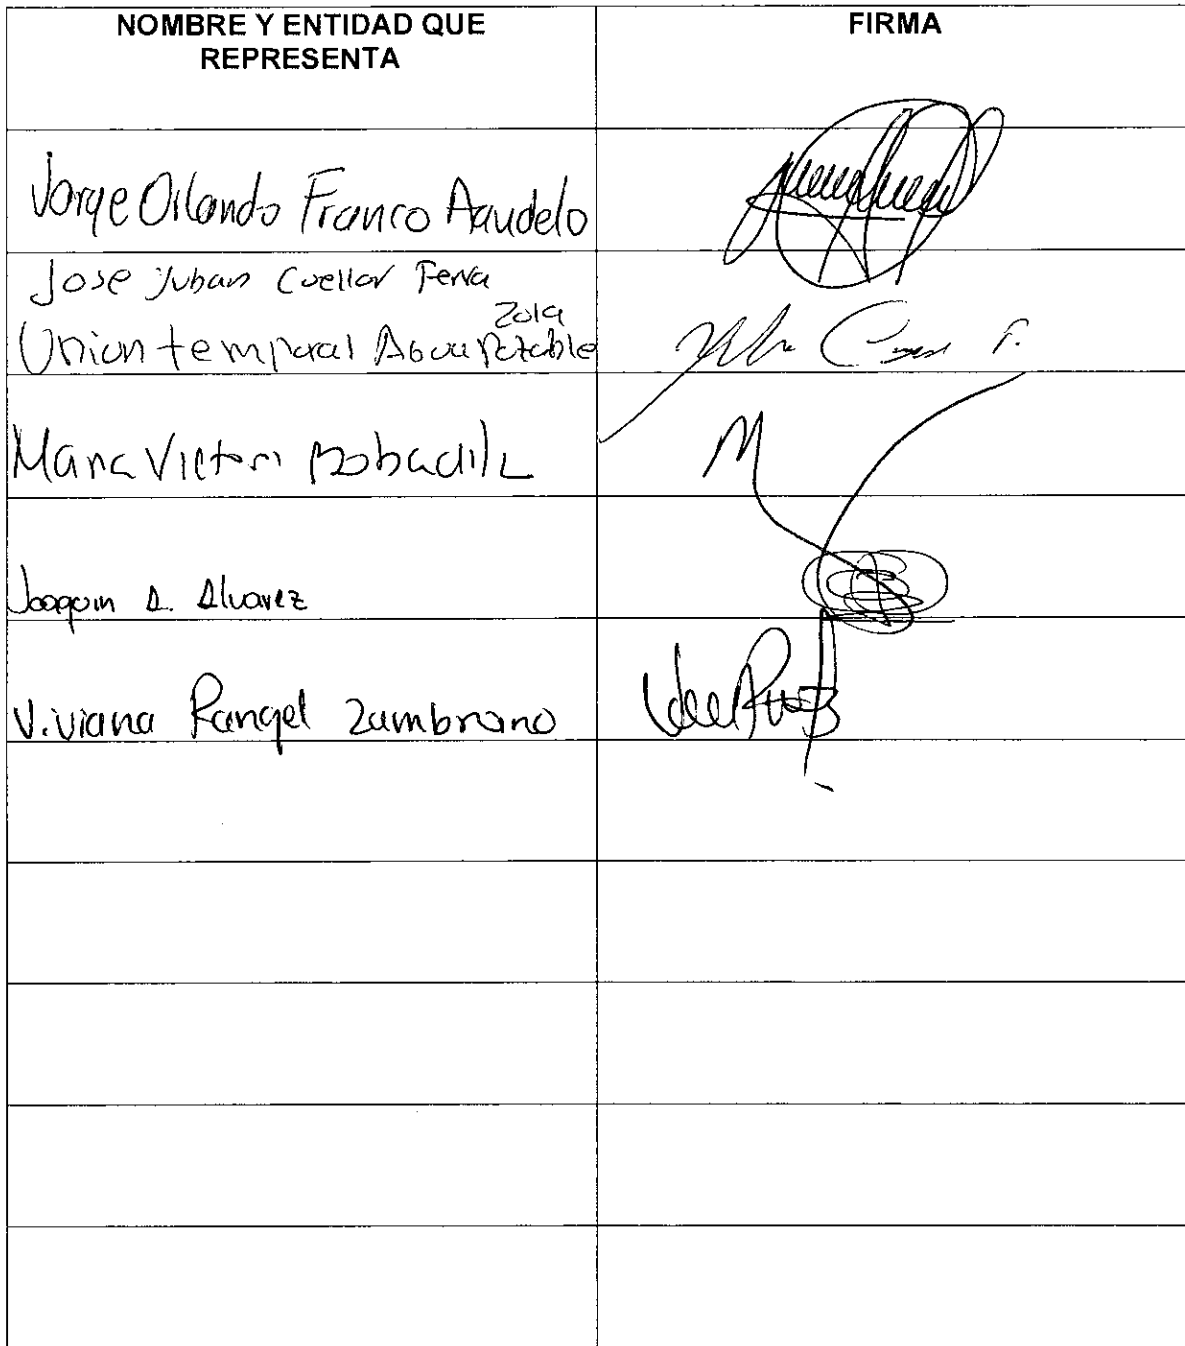 NOMBRE Y ENTIDAD QUE
REPRESENTA
FIRMA
Jorge Orlando Franco Agudelo
Jose Cuellar
2019
Union temporal Agua Potable
Maria Victori Bobadilla
Joaquin A. Alvarez
Viviana Rangel Zambrano